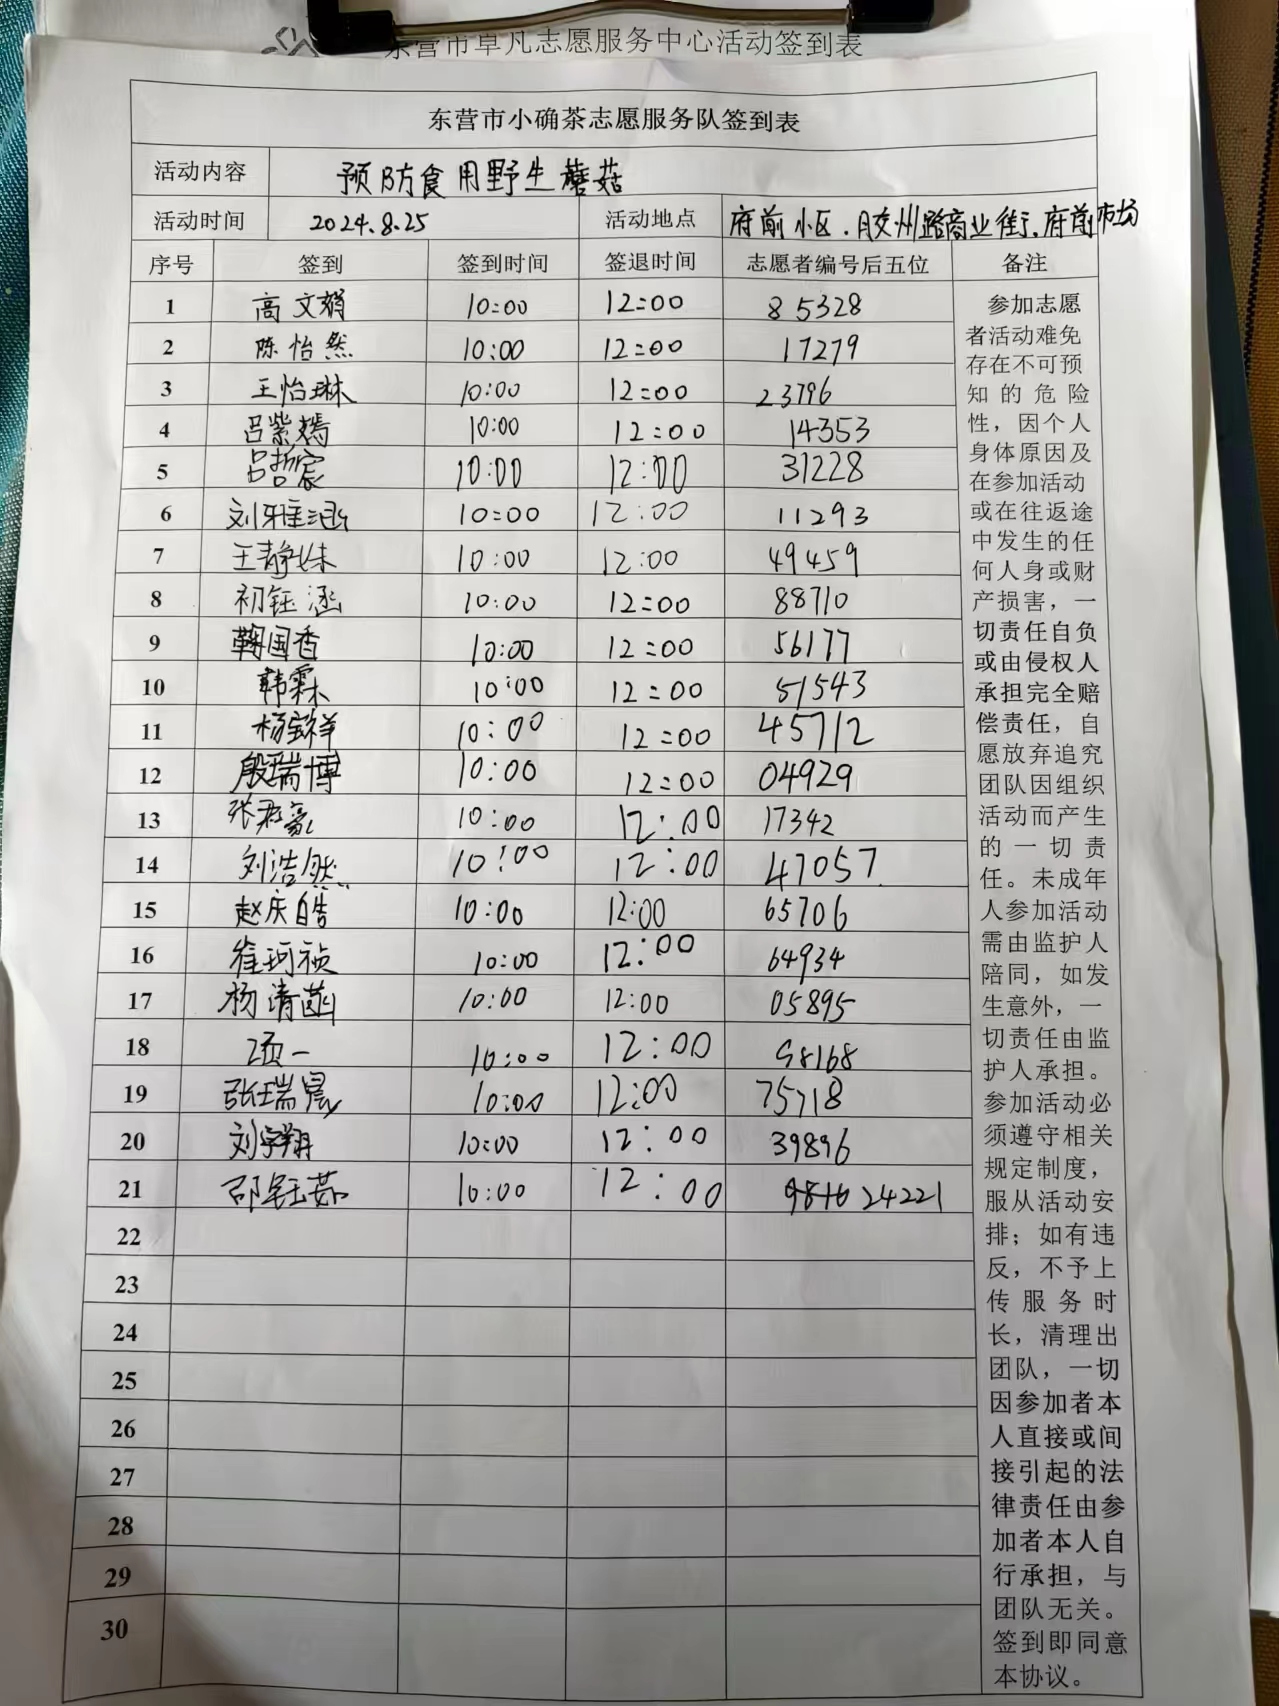 东营市卓凡志愿服务中心活动签到表
东营市小确茶志愿服务队签到表
活动内容 预防食用野生蘑菇
活动时间 2024.8.25 活动地点 府前小区.胶州路商业街.府前市场
序号 签到 签到时间 签退时间 志愿者编号后五位 备注
1 高文娟 10:00 12:00 85328
2 陈怡然 10:00 12:00 17279
3 王怡琳 10:00 12:00 23796
4 吕紫嫣 10:00 12:00 14353
5 吕哲宸 10:00 12:00 31228
6 刘雅涵 10:00 12:00 11293
7 王静妹 10:00 12:00 49459
8 初钰涵 10:00 12:00 88710
9 韩国香 10:00 12:00 56177
10 韩霖 10:00 12:00 51543
11 杨宝祥 10:00 12:00 45712
12 殷瑞博 10:00 12:00 04929
13 张君豪 10:00 12:00 17342
14 刘浩然 10:00 12:00 47057
15 赵庆皓 10:00 12:00 65706
16 崔珂祯 10:00 12:00 64934
17 杨清菡 10:00 12:00 05895
18 项一 10:00 12:00 98168
19 张瑞晨 10:00 12:00 75718
20 刘宇翔 10:00 12:00 39896
21 邵钰茹 10:00 12:00 24221
22
23
24
25
26
27
28
29
30
参加志愿
者活动难免
存在不可预
知的危险
性，因个人
身体原因及
在参加活动
或在往返途
中发生的任
何人身或财
产损害，一
切责任自负
或由侵权人
承担完全赔
偿责任，自
愿放弃追究
团队因组织
活动而产生
的一切责
任。未成年
人参加活动
需由监护人
陪同，如发
生意外，一
切责任由监
护人承担。
参加活动必
须遵守相关
规定制度，
服从活动安
排；如有违
反，不予上
传服务时
长，清理出
团队，一切
因参加者本
人直接或间
接引起的法
律责任由参
加者本人自
行承担，与
团队无关。
签到即同意
本协议。